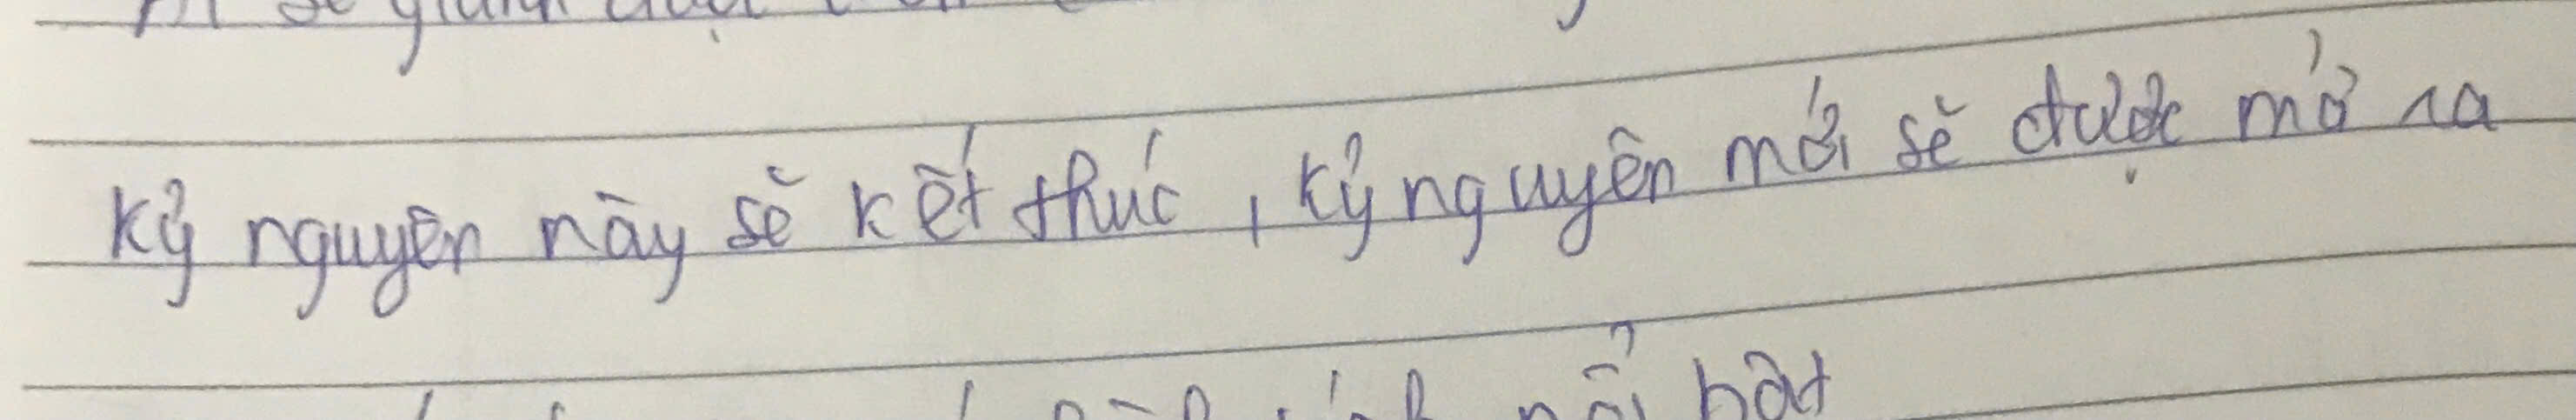 sẽ giành được
kỷ nguyên này sẽ kết thúc, kỷ nguyên mới sẽ được mở ra
nổi bật